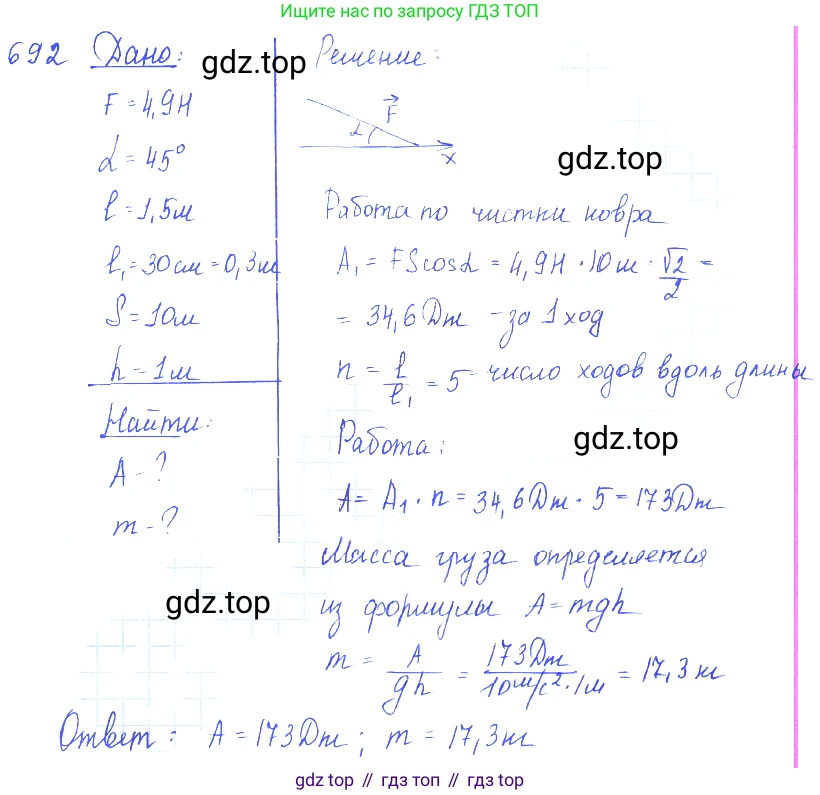 Ищите нас по запросу ГДЗ ТОП
692 Дано: gdz.top Решение:
F = 4,9Н
α = 45°
l = 1,5м
l₁ = 30см = 0,3м
S = 10м
h = 1м
Найти:
A - ?
m - ?
F
α
x
gdz.top
Работа по чистки ковра
A₁ = FScosα = 4,9Н · 10м · √2/2 =
= 34,6 Дж - за 1 ход
n = l/l₁ = 5 - число ходов вдоль длины
Работа: gdz.top
A = A₁ · n = 34,6 Дж · 5 = 173 Дж
Масса груза определяется
gdz.top
из формулы A = mgh
m = A/gh = 173Дж/10м/с² · 1м = 17,3 кг
Ответ: A = 173 Дж; m = 17,3кг
gdz top // гдз топ // гдз top